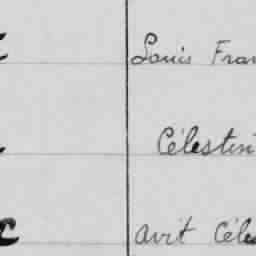 Louis Fran
Célestin
avit Céles